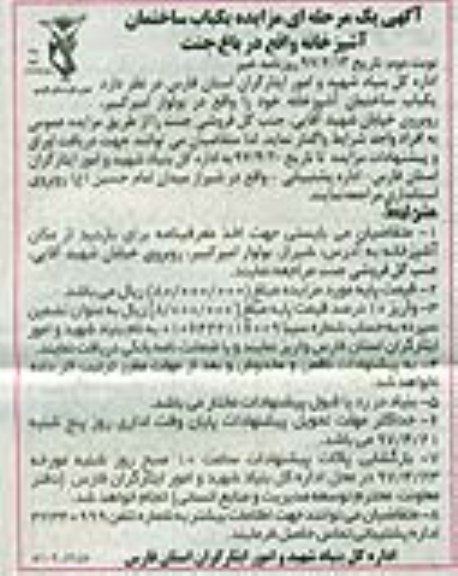 آگهی یک مرحله ای مزایده یکباب ساختمان
آشپزخانه واقع در باغ جنت
نوبت دوم تاریخ ۹۷/۲/۱۳ روزنامه خبر
اداره کل بنیاد شهید و امور ایثارگران استان فارس در نظر دارد
یکباب ساختمان آشپزخانه خود را واقع در بولوار امیرکبیر،
روبروی خیابان شهید آقایی، جنب گل فروشی جنت را از طریق مزایده عمومی
به افراد واجد شرایط واگذار نماید. لذا متقاضیان می توانند جهت دریافت اوراق
و پیشنهادات مزایده تا تاریخ به اداره کل بنیاد شهید و امور ایثارگران
استان فارس - اداره پشتیبانی - واقع در شیراز میدان امام حسین (ع) روبروی
استانداری مراجعه نمایند.
شرایط:
۱- متقاضیان می بایستی جهت اخذ معرفینامه برای بازدید از مکان
آشپزخانه به آدرس: شیراز، بولوار امیرکبیر، روبروی خیابان شهید آقایی،
جنب گل فروشی جنت مراجعه نمایند.
۲- قیمت پایه مورد مزایده مبلغ (۸۰/۰۰۰/۰۰۰) ریال می باشد.
۳- واریز ۱۰ درصد قیمت پایه مبلغ (۸/۰۰۰/۰۰۰) ریال به عنوان تضمین
سپرده به حساب شماره سیبا به نام بنیاد شهید و امور
ایثارگران استان فارس واریز نمایند و یا ضمانت نامه بانکی دریافت نمایند.
۴- به پیشنهادات ناقص و مخدوش و بعد از مهلت مقرر ترتیب اثر داده
نخواهد شد.
۵- بنیاد در رد یا قبول پیشنهادات مختار می باشد.
۶- حداکثر مهلت تحویل پیشنهادات پایان وقت اداری روز پنج شنبه
می باشد.
۷- بازگشایی پاکات پیشنهادات ساعت ۱۰ صبح روز شنبه مورخه
در محل اداره کل بنیاد شهید و امور ایثارگران فارس (دفتر
معاونت محترم توسعه مدیریت و منابع انسانی) انجام خواهد شد.
۸- متقاضیان می توانند جهت اطلاعات بیشتر به شماره تلفن
اداره پشتیبانی تماس حاصل فرمایند.
اداره کل بنیاد شهید و امور ایثارگران استان فارس